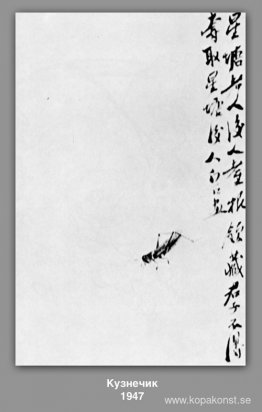 星塘老人後人藏君子不得
取星塘後人
Кузнечик
1947
www.kopakonst.se